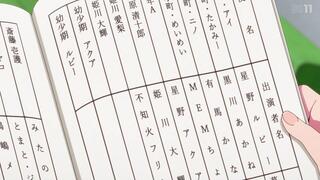 名
・アイ
町・たかみー
町・ニノ
町・めいめい
年A
原清十郎
姫川愛梨
姫川大輝
幼少期 アクア
幼少期 ルビー
斎藤壱護
出演者名
星野ルビー
黒川あかね
有馬かな
MEMちょ
星野アク
姫川大
不知火フリ
みたの
とまと・
鳴嶋メ